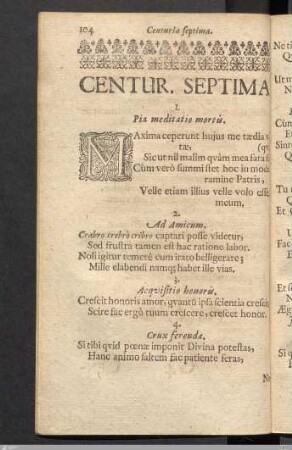 104 Centuria septima.
CENTUR. SEPTIMA
1.
Pia meditatio mortis.
MAxima ceperunt hujus me tædia v
tæ, (qv
Sic ut nil malim quàm mea fata
Cùm verò summi stet hoc in mode
ramine Patris,
Velle etiam illius velle volo esse
meum,
2.
Ad Amicum.
Crabro crebrò cribro captari posse videtur,
Sed frustra tamen est hac ratione labor.
Noli igitur temerè cum irato belligerare;
Mille elabendi namq; habet ille vias.
3.
Acqvisitio honoris.
Crescit honoris amor, qvantũ ipsa scientia crescit
Scire fac ergò tuum crescere, crescet honor.
4.
Crux ferenda.
Si tibi qvid pœnæ imponit Divina potestas,
Hanc animo saltem fac patiente feras,